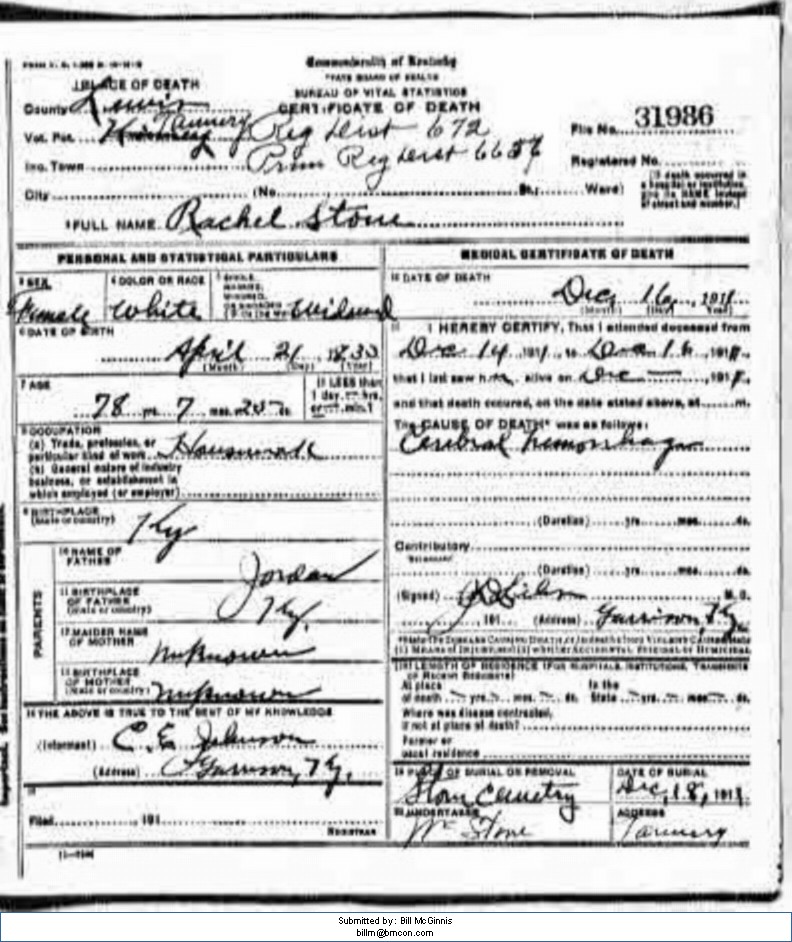 Commonwealth of Kentucky
STATE BOARD OF HEALTH
BUREAU OF VITAL STATISTICS
CERTIFICATE OF DEATH
1 PLACE OF DEATH
County Lewis
Vot. Pct. Tannery Reg Dist 672
Inc. Town Prim Reg Dist
City (No. St., Ward)
File No. 31986
Registered No.
(If death occurred in a hospital or institution, give its NAME instead of street and number.)
2 FULL NAME Rachel Stone
PERSONAL AND STATISTICAL PARTICULARS
3 SEX
Female
4 COLOR OR RACE
White
5 SINGLE, MARRIED, WIDOWED, OR DIVORCED
Widowed
6 DATE OF BIRTH
April 21
(Month) (Day) (Year)
7 AGE
78 yrs. 7 mos. ds.
If LESS than
1 day hrs.
or min.?
8 OCCUPATION
(a) Trade, profession, or
particular kind of work Housework
(b) General nature of industry
business, or establishment in
which employed (or employer)
9 BIRTHPLACE
(State or country) Ky
PARENTS
10 NAME OF
FATHER Jordan
11 BIRTHPLACE
OF FATHER
(State or country) Ky.
12 MAIDEN NAME
OF MOTHER Unknown
13 BIRTHPLACE
OF MOTHER
(State or country) Unknown
14 THE ABOVE IS TRUE TO THE BEST OF MY KNOWLEDGE
(Informant) C. E. Johnson
(Address) Garrison, Ky.
15
Filed 191
REGISTRAR
MEDICAL CERTIFICATE OF DEATH
16 DATE OF DEATH
Dec 16, 1911
(Month) (Day) (Year)
17 I HEREBY CERTIFY, That I attended deceased from
Dec 14, 1911, to Dec 16, 1911,
that I last saw h alive on Dec — , 1911,
and that death occured, on the date stated above, at m.
The CAUSE OF DEATH* was as follows:
Cerebral hemorrhage
(Duration) yrs. mos. ds.
Contributory
(Duration) yrs. mos. ds.
(Signed) M. D.
191 (Address) Garrison, Ky.
18 LENGTH OF RESIDENCE (FOR HOSPITALS, INSTITUTIONS, TRANSIENTS
OR RECENT RESIDENTS)
At place
of death yrs. mos. ds.
In the
State yrs. mos. ds.
Where was disease contracted,
if not at place of death?
Former or
usual residence
19 PLACE OF BURIAL OR REMOVAL
Stone Cemetry
DATE OF BURIAL
Dec, 18, 1911
20 UNDERTAKER
Stone
ADDRESS
Tannery
Submitted by: Bill McGinnis
billm@bmcon.com